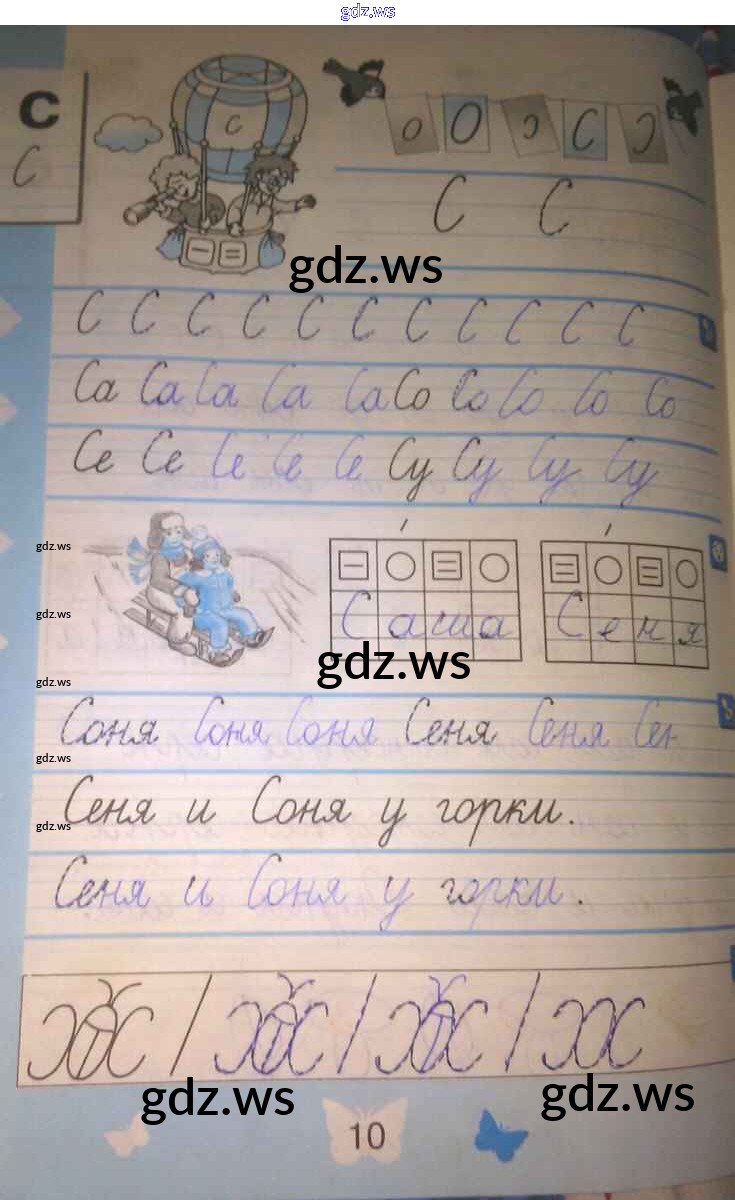 gdz.ws
С
С
с
о О о С с
С С
gdz.ws
С С С С С С С С С С С
Са Са Са Са Са Со Со Со Со Со
Се Се Се Се Се Су Су Су Су
gdz.ws
gdz.ws
Саша Сеня
gdz.ws
gdz.ws
Соня Соня Соня Сеня Сеня Сен
gdz.ws
Сеня и Соня у горки.
gdz.ws
Сеня и Соня у горки.
gdz.ws gdz.ws
10